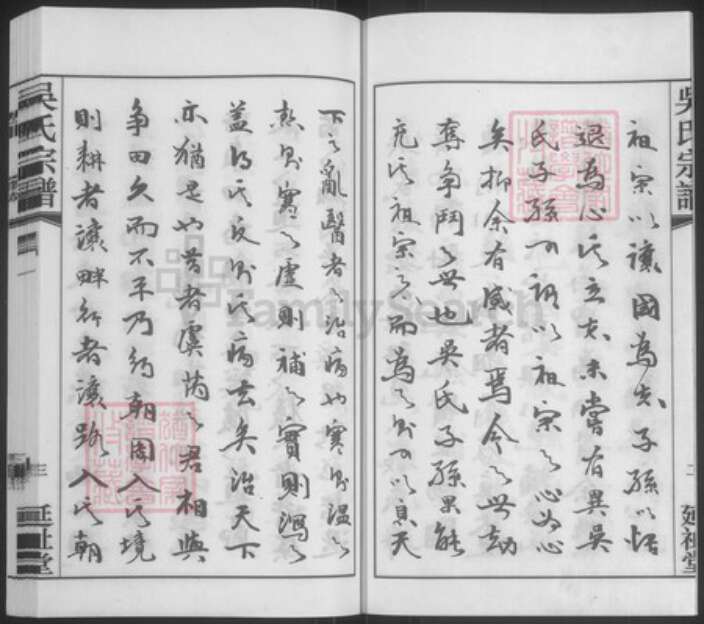 祖宗以讓國為志子孫以恬
退為心其立志未嘗有異吳
氏子孫可謂以祖宗之心為心
矣抑余有感者焉今之世劫
奪爭鬥之世也吳氏子孫果能
充其祖宗之心而為之則可以息天
下之亂醫者之治病也寒則溫之
熱則寒之虛則補之實則瀉之
蓋得其反則其病去矣治天下
亦猶是也昔者虞芮之君相與
爭田久而不平乃約朝周入其境
則耕者讓畔行者讓路入其朝
吳氏宗譜
二
延祉堂
吳氏宗譜
三
延祉堂
FamilySearch